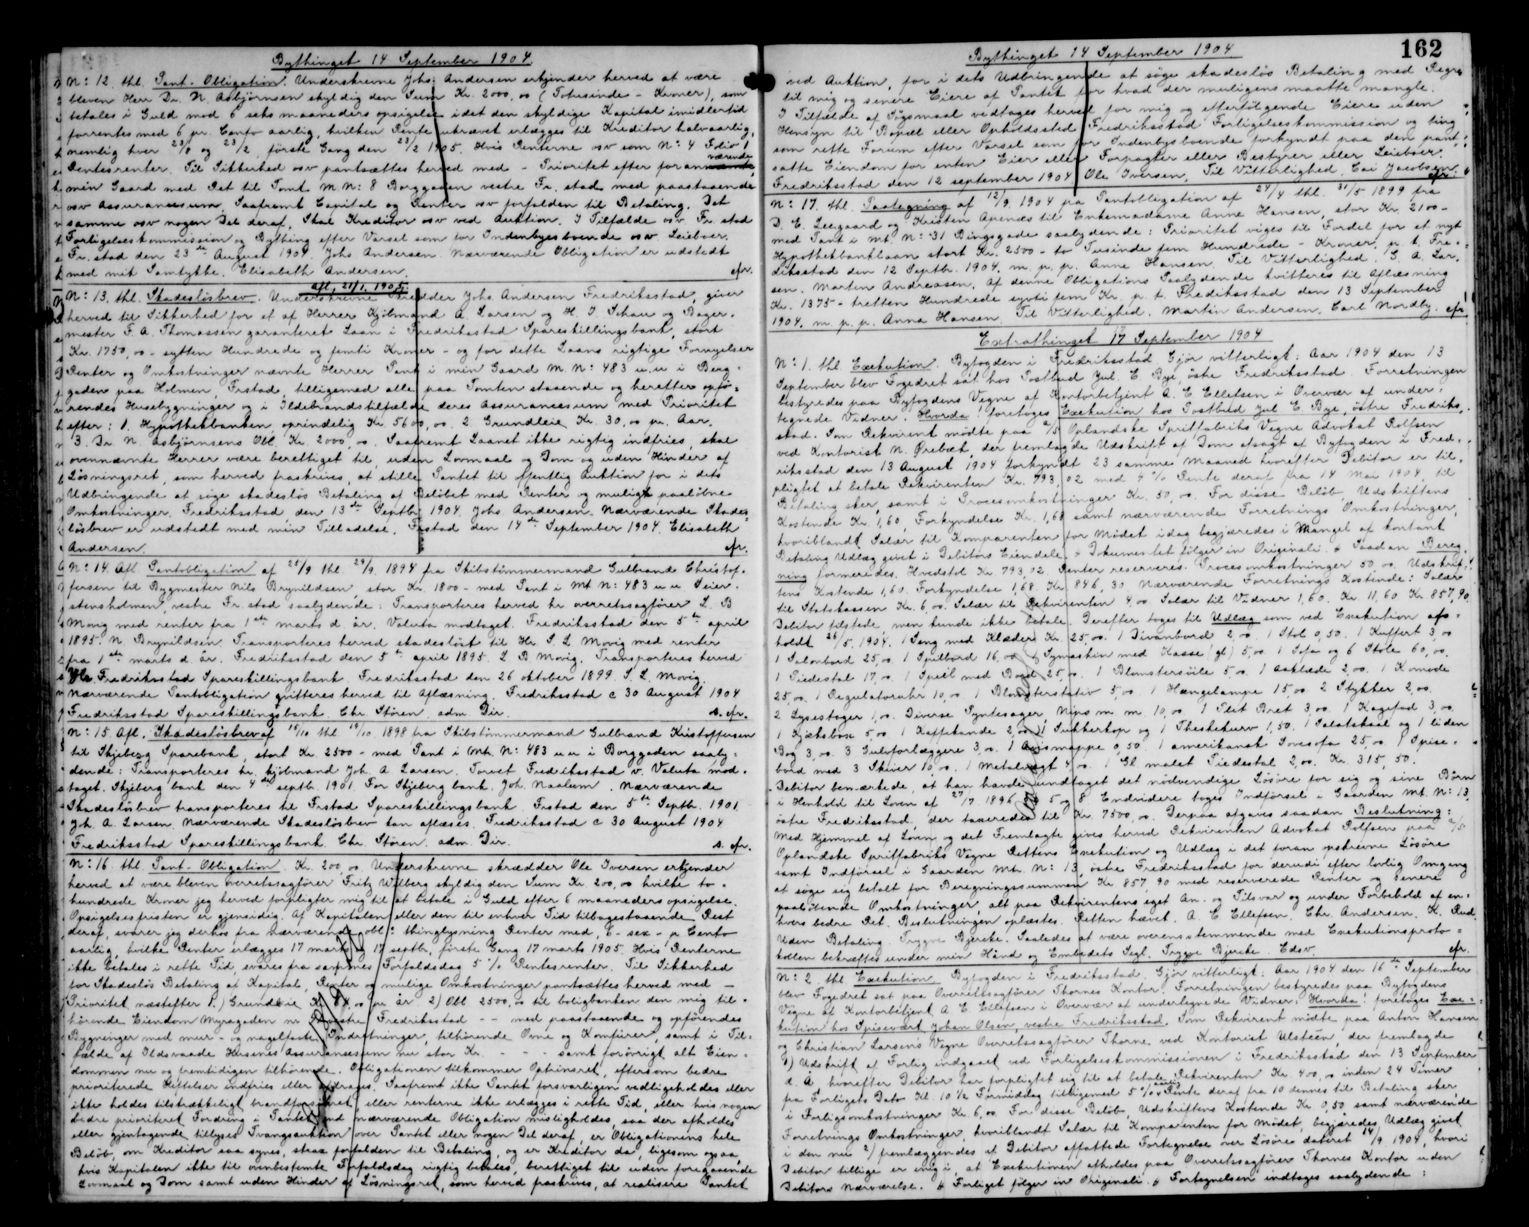 Bythinget 14 September 1904
N: 12. thl. Pant-Obligation. Underskrevne Johs. Andersen erkjender herved at være
bleven Herr Dr. N. Asbjörnsen skyldig den Sum Kr. 2000,00 (Totusinde - Kroner), som
betales i Guld med 6 seks maaneders opsigelse idet den skyldige Kapital imidlertid
forrentes med 6 pr. Cento aarlig, hvilken Rente ukrævet erlægges til Kreditor halvaarlig,
nemlig hver 23/8 og 23/2, förste Gang den 23/2 1905. Hvis Renterne osv som N: 4
Rentesrenter. Til Sikkerhed osv pantsættes herved med - Prioritet efter
min Gaard med Ret til Tomt M N: 8 Borggaden vestre Fr.stad med paastaaende
osv Assurancesum. Saafremt Capital og Renter osv forfalden til Betaling. Det
samme osv nogen Del deraf. Skal Kreditor osv ved Auktion. I Tilfælde osv Fr.stad
Forligelseskommission og Bything efter Varsel som for Indenbysboende osv Leieboer.
Fr.stad den 23de August 1904 Johs Andersen. Nærværende Obligation er udstedt
med mit Samtykke. Elisabeth Andersen. cfr.
afl. 21/1. 1905.
N: 13. thl. Skadeslösbrev. Underskrevne Johs. Andersen Fredriksstad, giver
herved til Sikkerhed for et af Herrer Kjöbmand A. Larsen og H. I. Schau og Bager-
mester F. A. Thomassen garanteret Laan i Fredriksstad Spareskillingsbank, stort
Kr. 1750,00 - sytten Hundrede og femti Kroner - og for dette Laans rigtige Fornyelser
Renter og Omkostninger nævnte Herrer Pant i min Gaard M N: 483 u.u i Berg-
gaden paa Holmen, Frstad, tilligemed alle paa Tomten staaende og herefter opfö-
rendes Husebygninger og i Ildebrandstilfælde deres Assurancesum med Prioritet
efter: 1. Hypothekbanken oprindelig Kr. 5600,00. 2. Grundleie Kr. 30,00 pr. Aar.
3. Dr N. Asbjörnsens Obl. Kr. 2000,00. Saafremt Laanet ikke rigtig indfries, skal
ovennævnte Herrer være berettiget til, uden Lovmaal og Dom og uden Hinder af
Lösningsret, som herved fraskrives, at stille Pantet til offentlig Auktion for i dets
Udbringende at söge skadeslös Betaling af Belöbet med Renter og mulige paalöbne
Omkostninger. Fredriksstad den 13de Septb. 1904. Johs. Andersen. Nærværende Skades-
lösbrev er udstedt med min Tilladelse. Frstad den 14de September 1904. Elisabeth
Andersen. cfr.
N: 14. Afl Pantobligation af 28/9 thl. 29/9 1894 fra Skibstömmermand Gulbrand Christof-
fersen til Bygmester Nils Brynildsen, stor Kr. 1800 - med Pant i Mt N: 483 u u Seier-
stensholmen, vestre Fr.stad saalydende: Transporteres herved hr overretssagförer L. B
Movig med renter fra 1ste marts d år. Valuta modtaget. Fredriksstad den 5te april
1895 N Brynildsen. Transporteres herved skadeslöst til Hr. S. L Movig med renter
fra 1ste marts d. år. Fredriksstad den 5te april 1895. L B Movig. Transporteres herved
Fredriksstad Spareskillingsbank. Fredriksstad den 26 oktober 1899 S. L. Movig.
Nærværende Pantobligation qvitteres herved til Aflæsning. Fredriksstad c 30 August 1904
Fredriksstad Spareskillingsbank. Chr. Stören. adm. Dir. s. cfr.
N: 15 Afl. Skadeslösbrev af 18/10 thl 19/10 1898 fra Skibstömmermand Gulbrand Kristoffersen
til Skjeberg Sparebank, stort Kr. 2500 - med Pant i Mt. N: 483 u u i Borggaden saaly-
dende: Transporteres hr. kjöbmand Joh. A Larsen. Torvet Fredriksstad v. Valuta mod-
taget. Skjeberg bank den 4de septb 1901 For Skjeberg bank. Joh. Navlum. Nærværende
Skadeslösbrev transporteres til Frstad Spareskillingsbank Frstad den 5te Septb. 1901
Joh. A. Larsen. Nærværende Skadeslösbrev kan aflæses. Fredriksstad c 30 August 1904
Fredriksstad Spareskillingsbank. Chr. Stören. adm. Dir. s. cfr.
N: 16. thl. Pant-Obligation. Kr. 200,00 Underskrevne skrædder Ole Iversen erkjender
herved at være bleven overretssagförer Fritz Wilberg skyldig den Sum Kr. 200,00 hvilke to-
hundrede Kroner jeg herved forpligter mig til at betale i Guld efter 6 maaneders opsigelse.
Opsigelsesfristen er gjensidig. Af Kapitalen eller den til enhver Tid tilbagestaaende Rest
deraf, svarer jeg derhos fra nærværende obl: thinglysning Renter med, 6 - sex - p. Cento
aarlig, hvilke Renter erlægges 17 marts og 17 septb. förste Gang 17 marts 1905. Hvis Renterne
ikke betales i rette Tid, svares fra sammes Forfaldsdag 5 % Rentesrenter. Til Sikkerhed
for Skadeslös Betaling af Kapital, Renter og mulige Omkostninger pantsættes herved med -
Prioritet næstefter 1) Grundleie Kr. pr. år 2) Obl 2500,00 til boligbanken den mig til-
hörende Eiendom Myragaden nr vestre Fredriksstad -- med paastaaende og opförendes
Bygninger med mur- og nagelfaste Indretninger, tilhörende Ovne og Komfürer, samt i Til-
fælde af Ildsvaade Husenes Assurancesum nu stor Kr. - - - samt forövrigt alt Eien-
dommen nu og fremtidigen tilhörende. Obligationen tilkommer Opbinsret, eftersom bedre
prioriterede Heftelser indfries eller afdrages. Saafremt ikke Pantet forsvarligen vedligeholdes eller
ikke holdes tilstrækkeligt brandforsikret, eller renterne ikke erlægges i rette Tid, eller hvis nogen
bedre prioriteret Fordring i Pantet end nærværende Obligation misligholdes, saa der afholdes
eller gjentagende tillyses Tvangsauktion over Pantet eller nogen Del deraf, er Obligationens hele
Belöb, om Kreditor saa synes, straa forfalden til Betaling, og er Kreditor da, ligesom ogsaa
hvis Kapitalen ikke til ovenbestemte Forfaldsdag rigtig betales, berettiget til uden foregaaende
Lovmaal og Dom samt uden Hinder af Lösningsret, som herved fraskrives, at realisere Pantet
Bythinget 14 September 1904
162
ved Auktion, for i dets Udbringende at söge skadeslös Betaling med Regres
til mig og senere Eiere af Pantet for hvad der muligens maatte mangle.
I Tilfælde af Sögsmaal vedtages herved for mig og efterfölgende Eiere uden
Hensyn til Bopæl eller Opholdssted Fredriksstad Forligelseskommission og ting
som rette Forum efter Varsel som for Indenbysboende forkyndt paa den pant-
satte Eiendom for enten Eier eller Forpagter eller Bestyrer eller Leieboer.
Fredriksstad den 12 september 1904 Ole Iversen. Til Vitterlighed. Kai Jacobsen. cfr.
N: 17. thl. Paategning af 12/9 1904 paa Pantobligation af 24/4 thl. 31/5 1899 fra
D. E. Leegaard og Kristen Apenæs til Enkemadame Anne Hansen, stor Kr. 2100 -
med Pant i mt N: 31 Bingsgade saalydende: Prioritet viges til Fordel for et nyt
Hypothekbanklaan stort Kr. 2500 - to Tusinde fem Hundrede - Kroner, p. t. Fre-
driksstad den 12 Septbr. 1904. m. p. p. Anne Hansen. Til Vitterlighed. G. A. Lar-
sen. Martin Andreassen. Af denne Obligations Paalydende kvitteres til Aflæsning
Kr. 1375 - tretten Hundrede syvti fem Kr. p. t. Fredriksstad den 13 September
1904. m p. p. Anna Hansen. Til Vitterlighed. Martin Andersen. Carl Nordby. cfr.
Extrathinget 17 September 1904
N: 1. thl. Exekution. Byfogden i Fredriksstad Gjör vitterligt: Aar 1904 den 13
September blev Fogedret sat hos Postbud Jul. E Bye, östre Fredriksstad. Forretningen
bestyredes paa Byfogdens Vegne af Kontorbetjent A. E Ellefsen i Overvær af under-
tegnede Vidner. Hvorda! foretoges Exekution hos Postbud Jul E Bye, östre Fredriks-
stad. Som Rekvirent mödte paa A/S Oplandske Spritfabriks Vegne Advokat Rolfsen
ved Kontorist N. Örebæk, der fremlagde Udskrift af Dom afsagt af Byfogden i Fred-
riksstad den 13 August 1904 forkyndt 23 samme Maaned hvorefter Debitor er til-
pligtet at betale Rekvirenten Kr. 793,02 med 4 % Rente deraf fra 14 Mai 1904 til
Betaling sker samt i Procesomkostninger Kr. 50,00. For disse Belöb, Udskriftens
Kostende Kr. 1,60, Forkyndelse Kr. 1,68 samt nærværende Forretnings Omkostninger,
hvoriblandt Salær til Komparenten for Mödet idag begjæredes i Mangel af kontant
Betaling Udlæg givet i Debitors Eiendele. # Dokumentet fölger in Originali. # Saadan Bereg-
ning formeredes. Hovedstol Kr. 793,02 Renter reserveres. Procesomkostninger 50,00. Udskrif-
tens Kostende 1,60. Forkyndelse 1,68. Kr. 846,30 Nærværende Forretnings Kostende: Salær
til Statskassen Kr. 6,00. Salær til Rekvirenten 4,00 Salær til Vidner 1,60. Kr. 11,60 Kr 857,90
Debitor tilstede, men kunde ikke betale. Derefter toges til Udlæg som ved Exekution afs-
holdt 26/5 1904. 1 Seng med Klæder Kr. 25,00. 1 Divanbord 2,00. 1 Stol 0,50. 1 Kuffert 3,00
1 Salonbord 25,00. 1 Spillbord 16,00. 1 Symaskin med Kasse (gl) 5,00 1 Sofa og 6 Stole 60,00.
1 Piedestal 17,00. 1 Speil med Bord 25,00. 1 Blomstersöile 5,00. 1 Askläde 2,00. 1 Komode
25,00. 1 Regulatoruhr 10,00. 1 Blomsterstativ 5,00. 1 Hængelampe 15,00 2 Stykker 2,00.
2 Lysestager 1,00. Diverse Pyntesager, Nips m. m. 10,00. 1 Plet Bret 3,00. 1 Kagefad 3,00.
1 Kjæksbox 5,00 1 Kaffekande 2,00. 1 Sukkerkop og 1 Theskekurv 1,50. 1 Salatskaal og 1 liden
Bog 3,00. 3 Gulvforlæggere 3,00. 1 Avismappe 0,50. 1 amerikansk Sovesofa 25,00. 1 Spise-
bord med 3 Skuver 10,00. 1 Metalvægt 4,00. 1 Gl malet Piedestal 2,00. Kr. 315,50.
Debitor bemærkede, at han havde undtaget det nödvendige Lösöre for sig og sine Börn
i Henhold til Loven af 27/7 1896 § 5 og 8 Endvidere toges Indförsel i Gaarden Mt N: 13
östre Fredriksstad, der taxeredes til Kr. 7500,00. Derpaa afgaves saadan Beslutning:
Med Hjemmel af Loven og det Fremlagte gives herved Rekvirenten Advokat Rolfsen paa A/S
Oplandske Spritfabriks Vegne Rettens Exekution og Udlæg i det foran opskrevne Lösöre
samt Indförsel i Gaarden Mt. N: 13, östre Fredriksstad for derudi efter lovlig Omgang
at söge sig betalt for Beregningssummen Kr 857,90 med reserverede Renter og senere
paalöbende Omkostninger alt paa Rekvirentens eget An- og Tilsvar og under Forbehold af en-
hvers bedre Ret. Beslutningen oplæstes. Retten hævet. A. E Ellefsen. Chr. Andersen. K. Rud.
Uden Betaling Trygve Bjercke. Saaledes at være overensstemmende med Exekutionsproto-
kollen bekræftes under min Haand og Embedets Segl. Trygve Bjercke Edsv. cfr.
N: 2 thl Exekution. Byfogden i Fredriksstad. Gjör vitterligt: Aar 1904 den 16de September
blev Fogedret sat paa Overretssagförer Thornes Kontor. Forretningen bestyredes paa Byfogdens
Vegne af Kontorbetjent A. E Ellefsen i Overvær af underlegnede Vidner. Hvorda! foretoges Exe-
kution hos Spisevært Johan Olsen, vestre Fredriksstad. Som Rekvirent mödte paa Anton Hansen
og Christian Larsens Vegne Overretssagförer Thorne ved Kontorist Ulsteen, der fremlagde
1) Udskrift af Forlig indgaaet ved Forligelseskommissionen i Fredriksstad den 13 September
d. A. hvorefter Debitor har forpligtet sig til at betale Rekvirenten Kr. 400,00 inden 24 Timer
fra Forligets Dato Kl. 10½ Formiddag tilligemed 5 % aarlig Rente deraf fra 10 dennes til Betaling sker
i Forligsomkostninger Kr. 6,00. For disse Belöb, Udskriftens Kostende Kr 0,50 samt nærværende
Forretnings Omkostninger, hvoriblandt Salær til Komparenten for Mödet, begjæredes Udlæg givet
i den nu 2) fremlæggendes af Debitor affattede Fortegnelse over Lösöre dateret 14/9 1904, hvori
Debitor tillige er enig i, at Exekutionen afholdes paa Overretssagförer Thornes Kontor uden
Debitors Nærværelse. # Forliget fölger in Originali. # Fortegnelsen indtages saalydende: